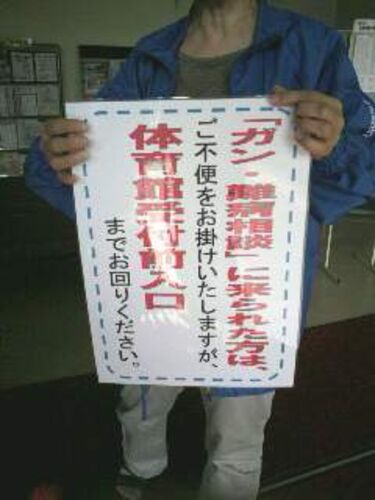 「ガン・難病相談」に来られた方は、
ご不便をお掛けいたしますが、
体育館受付前入口
までお回りください。